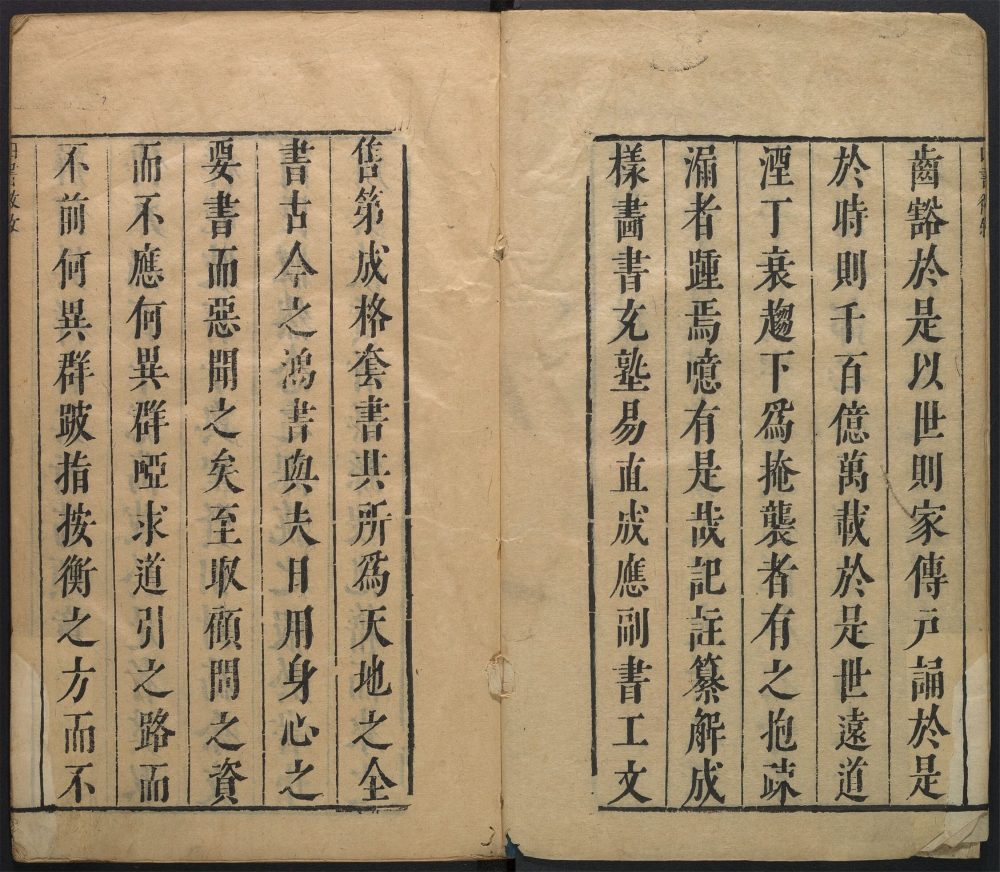 齒豁於是以世則家傳戸誦於是
於時則千百億萬載於是世遠道
湮丁衰趨下爲掩襲者有之抱疎
漏者踵焉噫有是哉記註纂解成
樣畵書充塾易直成應副書工文
售第成格套書其所爲天地之全
書古今之鴻書與夫日用身心之
要書而惡聞之矣至取顧問之資
而不應何異群啞求道引之路而
不前何異群跛指按衡之方而不